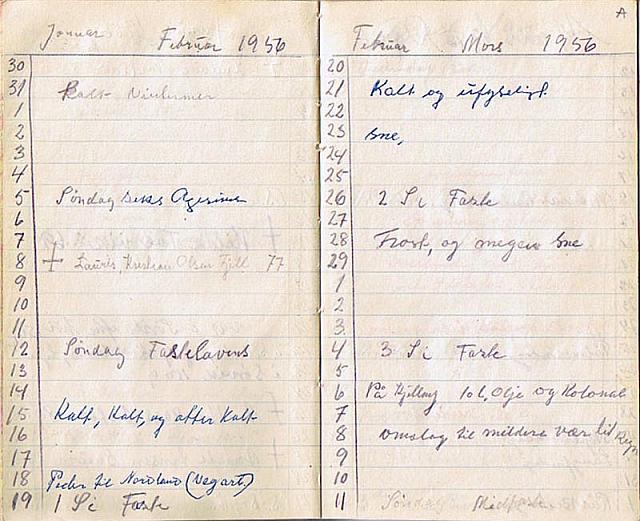 Januar Februar 1956
30
31 Kalt
1
2
3
4
5 Søndag
6
7
8 † Laurits, Kristian Olsen Fjell 77
9
10
11
12 Søndag Fastelavens
13
14
15 Kalt, Kalt, og atter Kalt
16
17
18 Peder til Nordland (Vegart)
19 1 S i Faste
A
Februar Mars 1956
20
21 Kalt og ufyseligt
22
23 Sne,
24
25
26 2 S i Faste
27
28 Frost, og megen Sne
29
1
2
3
4 3 S i Faste
5
6 På Hjelling 10 l, Olje og Kolonial
7
8 Omslag til mildere vær litt Regn
9
10
11 Søndag Midfaste